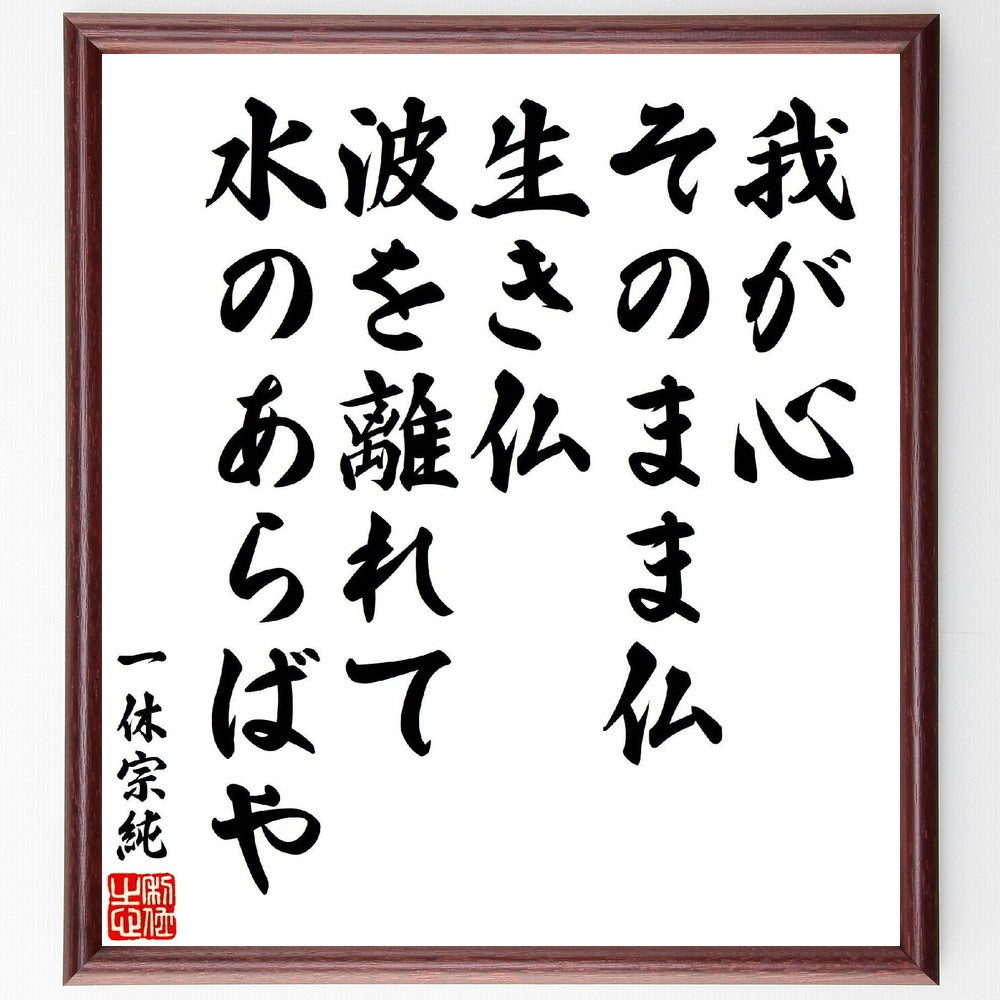 我が心
そのまま仏
生き仏
波を離れて
水のあらばや
一休宗純